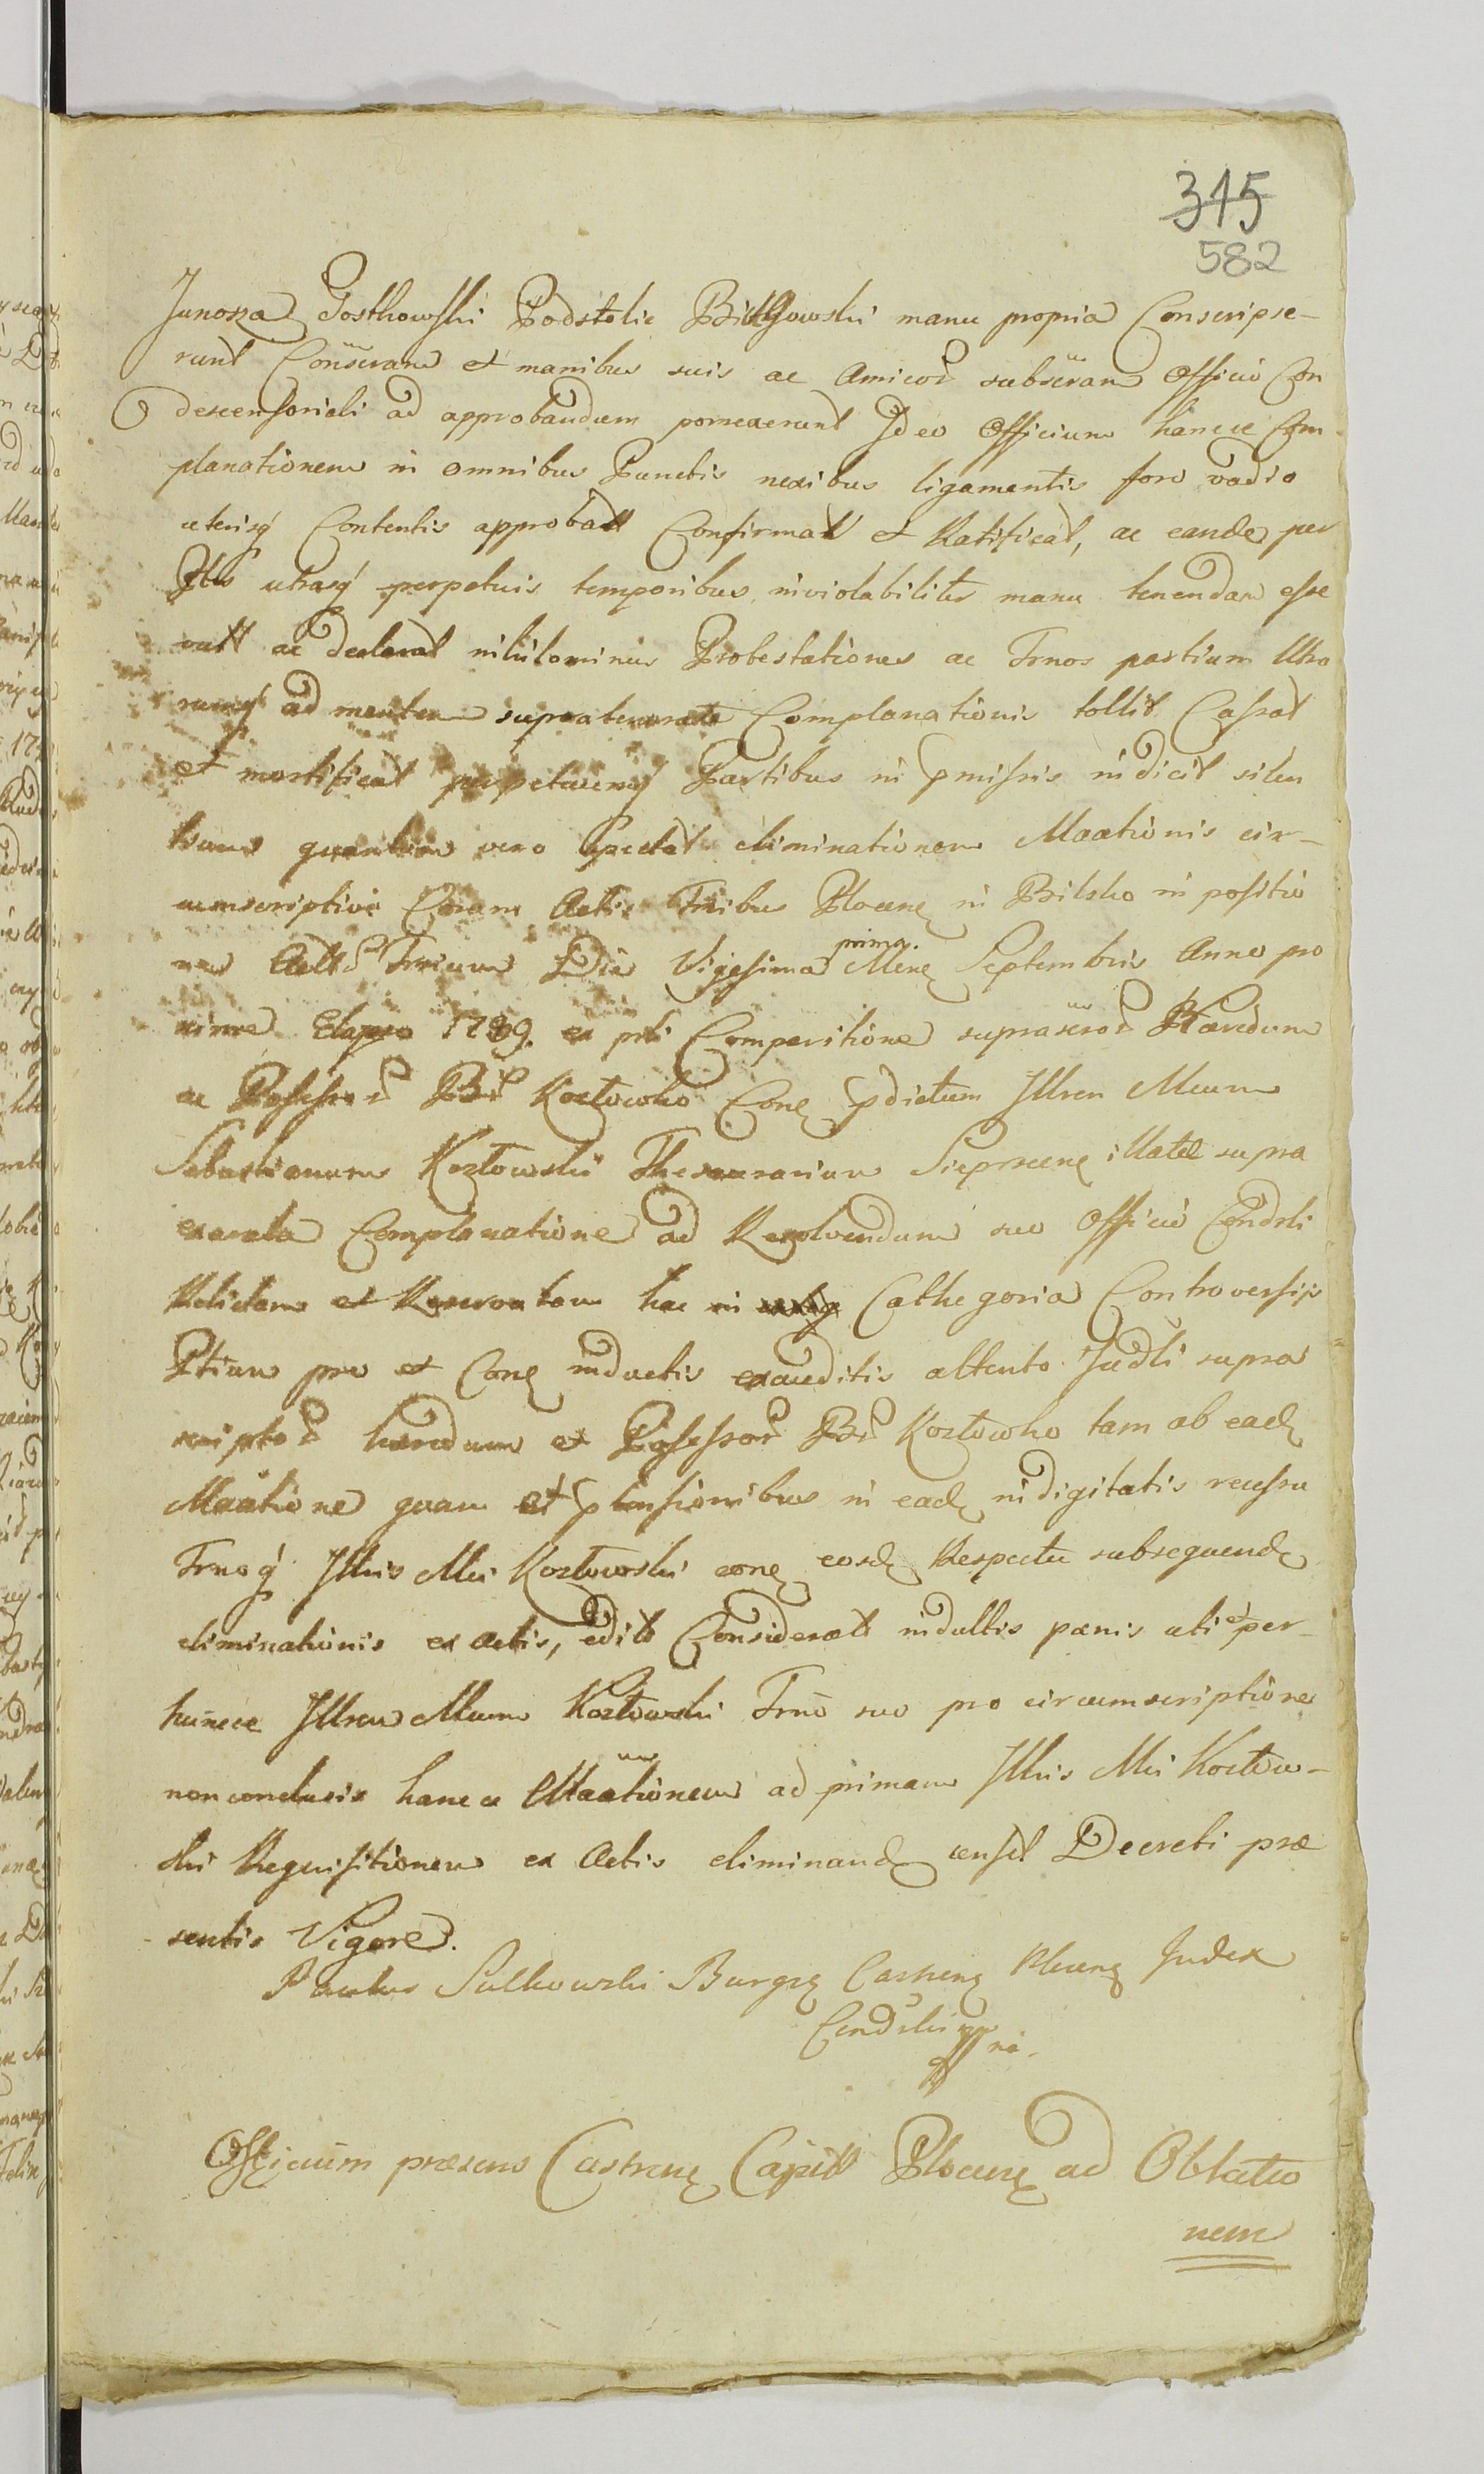 315
582
Junosza Gostkowski Podstolic Bielgowski manu propria Conscripse-
runt Conscram et manibus suis ac Amicor subscram Officio Con
descensoriali ad approbandum porrexerunt Ideo Officium hancce Com-
planationem in omnibus Punctis nexibus ligamentis foro vadio
uterisq Contentis approbatt Confirmat et Ratificat, ac eande per
Ptes utrasq perpetuis temporibus inviolabiliter manu tenendam esse
vult ac declarat nihilominus Protestationes ac Trnos partium Utra
rumq ad mentem supratenorate Complanationis tollit Cassat
et mortificat perpetuumq Partibus in pmissis indicit silen
tium quantum vero spectat eliminationem Maationis cir-
cumscriptive Coram Actis Trribus Plocens in Bilsko in positio
ne Actor Trrium Die Vigesima prima. Mens Septembris Anno pro
xime Elapso 1789. ex pti Comparitione suprascror Haeredum
ac Possessor Br Kozłowko Cons pdictum Illren Mcum
Sebastianum Kozłowski Thesaurarium Sieprscens illatae supra
exarata Complanatione ad Resolvendum suo Officio Condrli
Relictam et Reservatam hac in Cathegoria Controversiis
Ptium pro et Cons inductis exauditis attento Judli supra
scriptor haeredum et Possessor Br Kozłowko tam ab ead
Maatione quam et ptensionibus in ead indigitatis recessu
Trnoq Illris Mci Kozłowski cons eosd Respectu subsequend
eliminationis ex Actis, edito Considerato indultis paenis uti et per-
huncce Illren Mcum Kozłowski Trno suo pro circumscriptione
non conclusis hancce Maationem ad primam Illris Mci Kozłow-
ski Requisitionem ex Actis eliminand censet Decreti prae
sentis Vigore.
Paulus Sulkowski Burgrs Castrens Plocens Judex
Condrlis mp
Officium praesens Castrens Capitt Plocens ad Oblatio
nem